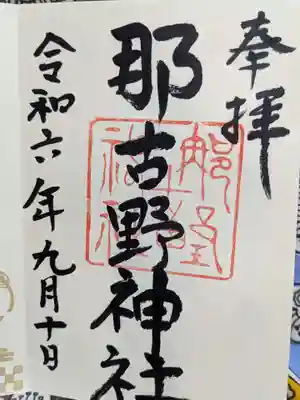 奉拝
那古野神社
令和六年九月十日